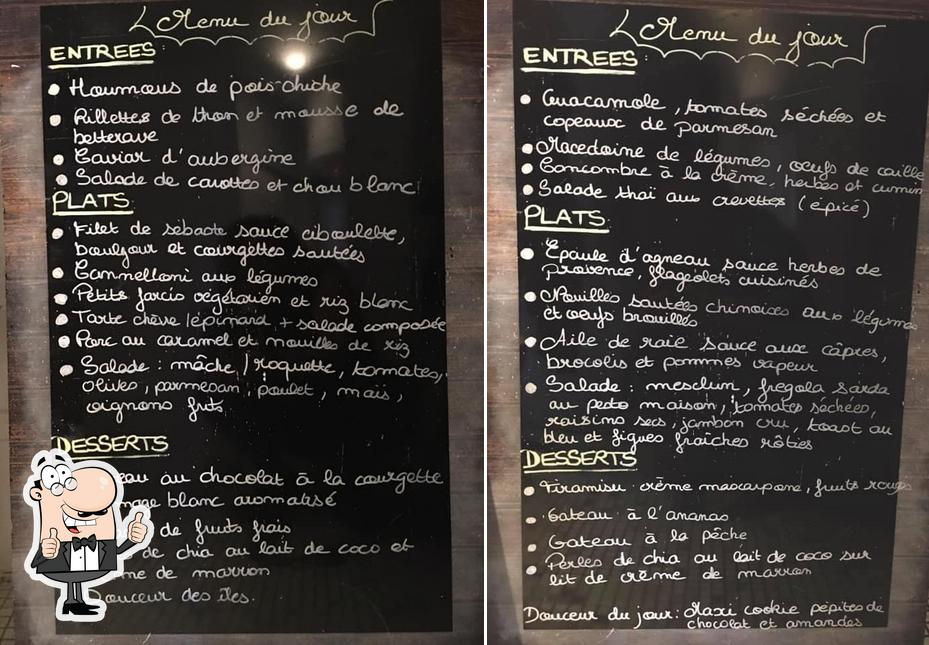 Menu du jour
ENTREES:
Houmous de pois-chiche
Rillettes de thon et mousse de
betterave
Caviar d'aubergine
Salade de carottes et chou blanc
PLATS
Filet de sebaste sauce ciboulette,
boulgour et courgettes sautées
Cannelloni aux légumes
Petits farcis végétarien et riz blanc
Tarte chèvre/épinard + salade composée
Porc au caramel et nouilles de riz
Salade : mâche/roquette, tomates,
olives, parmesan, poulet, maïs,
oignons frits
DESSERTS
au chocolat à la courgette
blanc aromatisé
de fruits frais
de chia au lait de coco et
de marron
Douceur des îles.
Menu du jour
ENTREES:
Guacamole, tomates séchées et
copeaux de parmesan
Macedoine de légumes, oeufs de caille
Concombre à la crème, herbes et cumin
Salade thaï aux crevettes (épicé)
PLATS
Epaule d'agneau sauce herbes de
provence, flageolets cuisinés
Nouilles sautées chinoises aux légumes
et oeufs brouillés
Aile de raie sauce aux câpres,
brocolis et pommes vapeur
Salade : mesclun, fregola sarda
au pesto maison, tomates séchées,
raisins secs, jambon cru, toast au
bleu et figues fraîches rôties
DESSERTS
Tiramisu crème mascarpone, fruits rouges
Gateau à l'ananas
Gateau à la pêche
Perles de chia au lait de coco sur
lit de crème de marron
Douceur du jour: Maxi cookie pépites de
chocolat et amandes